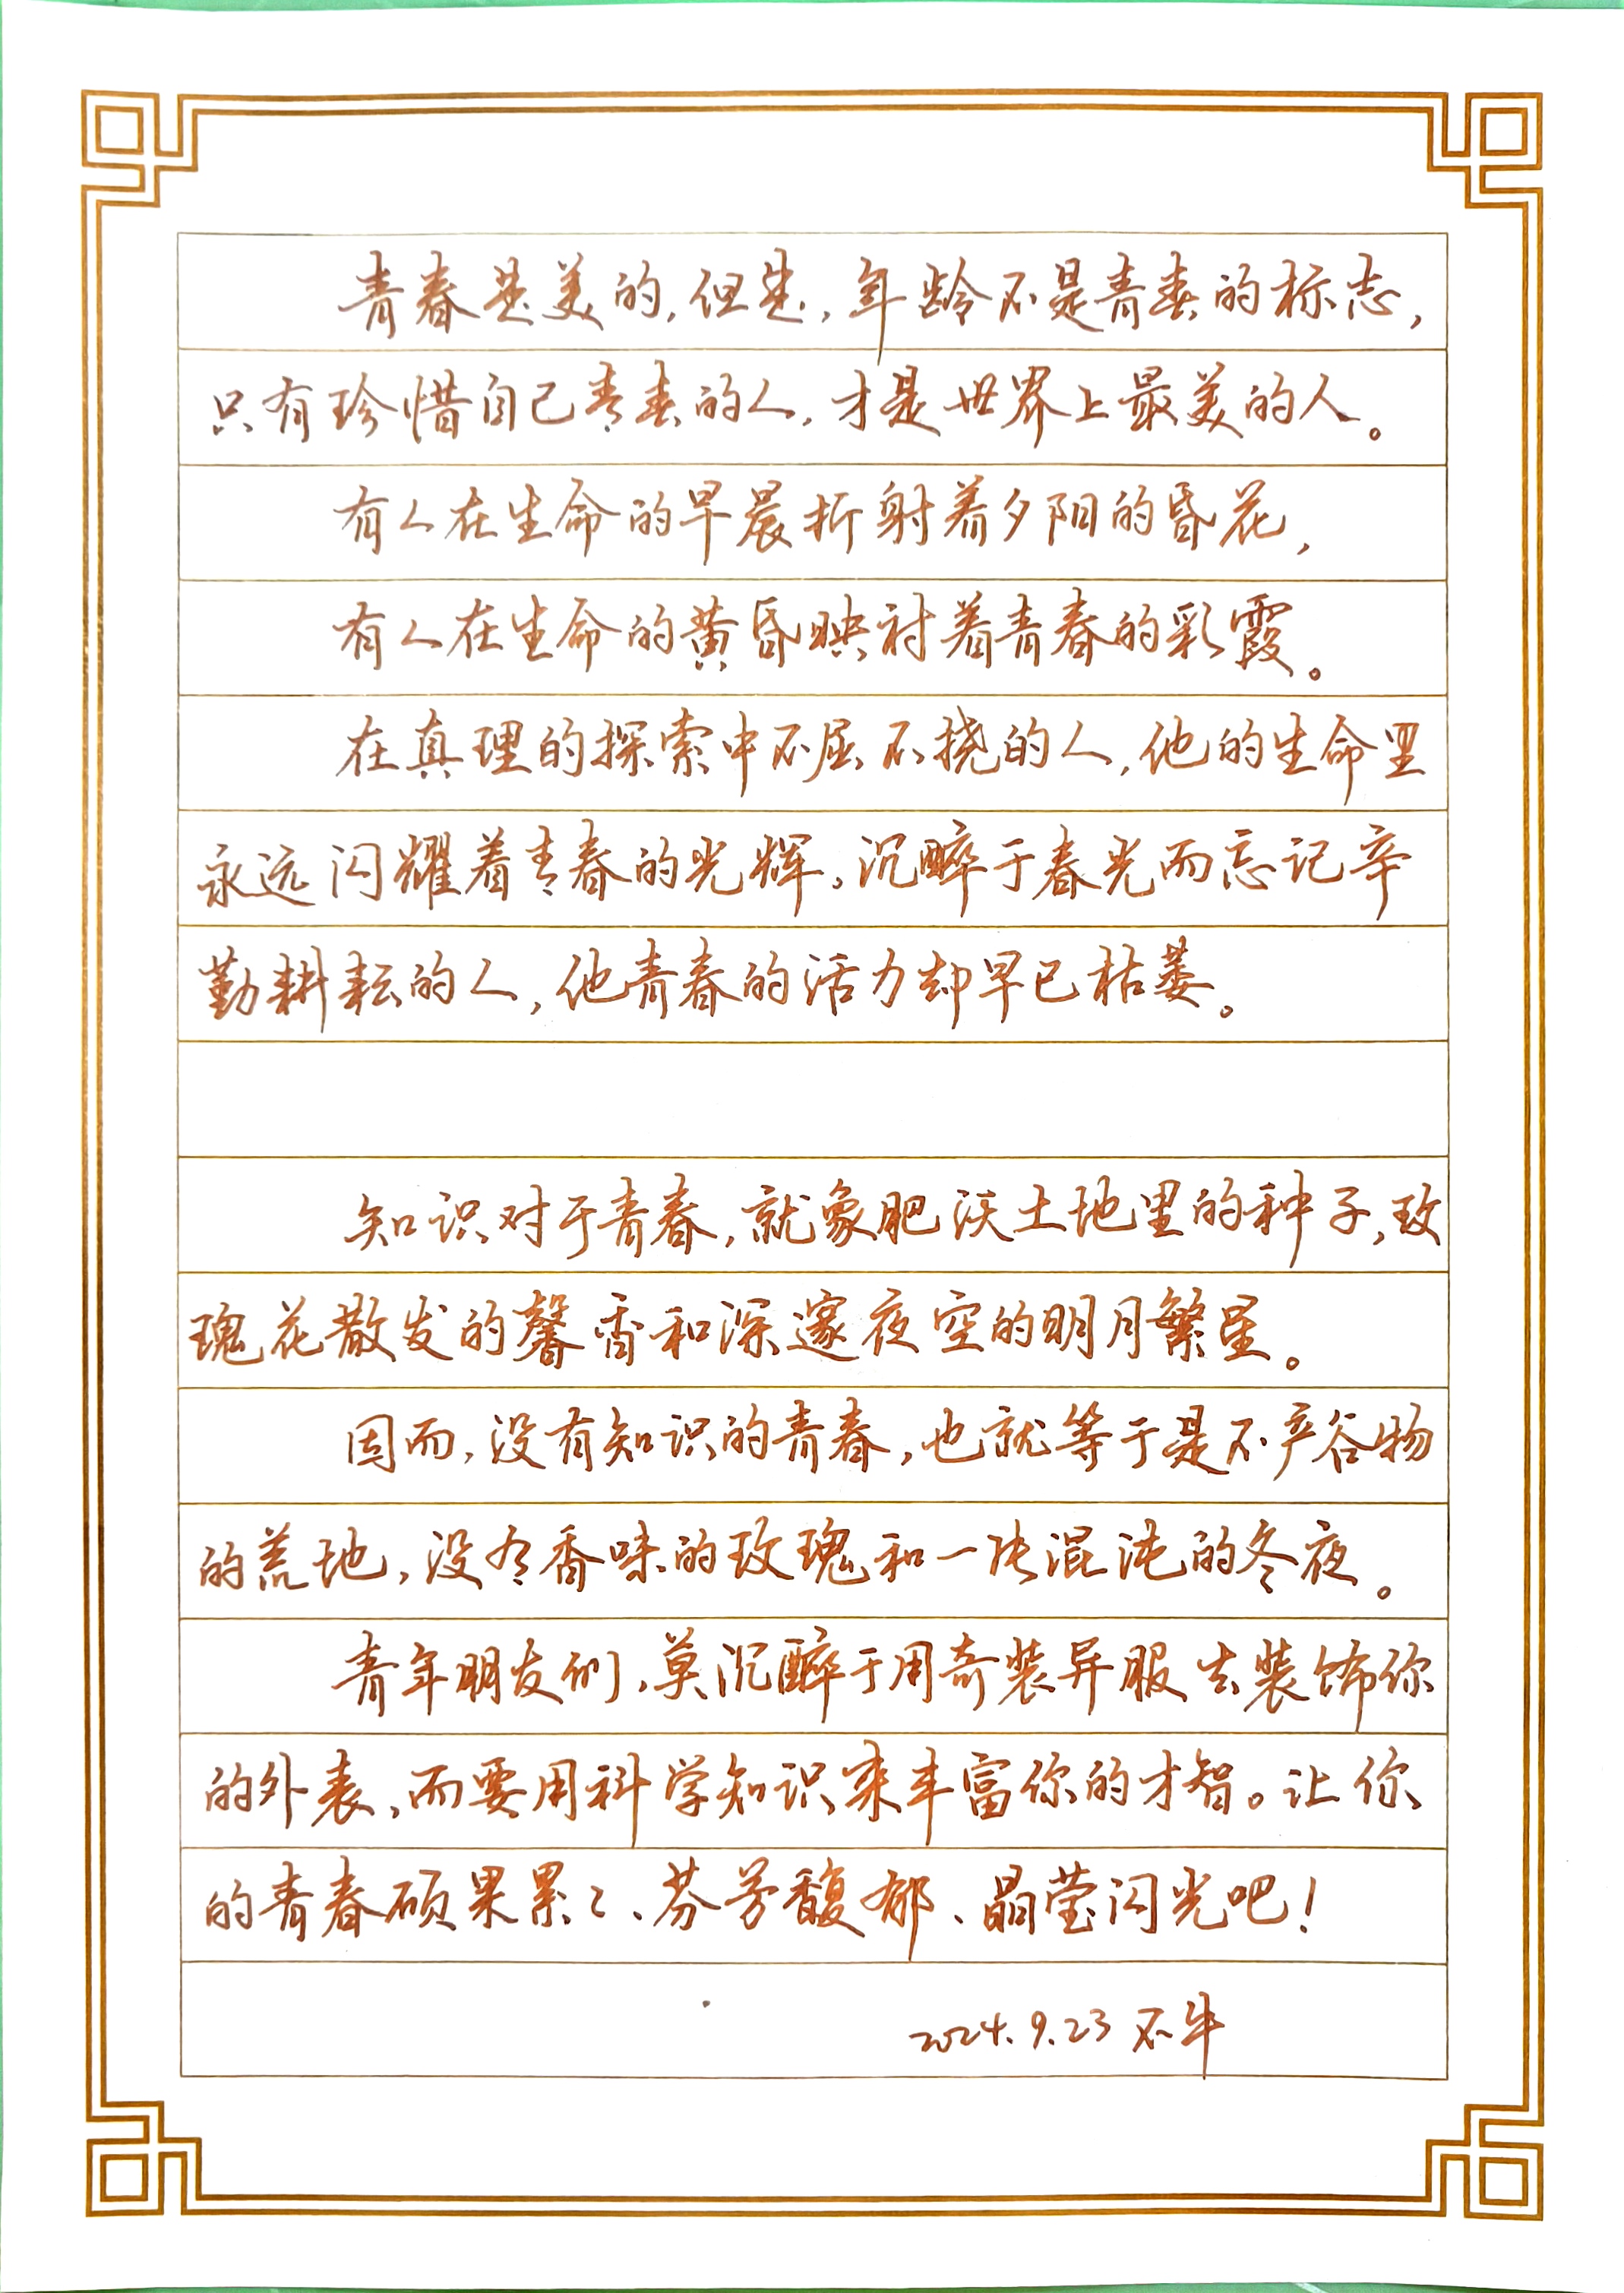 青春是美的,但是,年龄不是青春的标志,
只有珍惜自己青春的人,才是世界上最美的人。
有人在生命的早晨折射着夕阳的昏花,
有人在生命的黄昏映衬着青春的彩霞。
在真理的探索中不屈不挠的人,他的生命里
永远闪耀着青春的光辉。沉醉于春光而忘记辛
勤耕耘的人,他青春的活力却早已枯萎。
知识对于青春,就象肥沃土地里的种子,玫
瑰花散发的馨香和深邃夜空的明月繁星。
因而,没有知识的青春,也就等于是不产谷物
的荒地,没有香味的玫瑰和一片混沌的冬夜。
青年朋友们,莫沉醉于用奇装异服去装饰你
的外表,而要用科学知识来丰富你的才智。让你
的青春硕果累々、芬芳馥郁、晶莹闪光吧!
2024.9.23 不牛